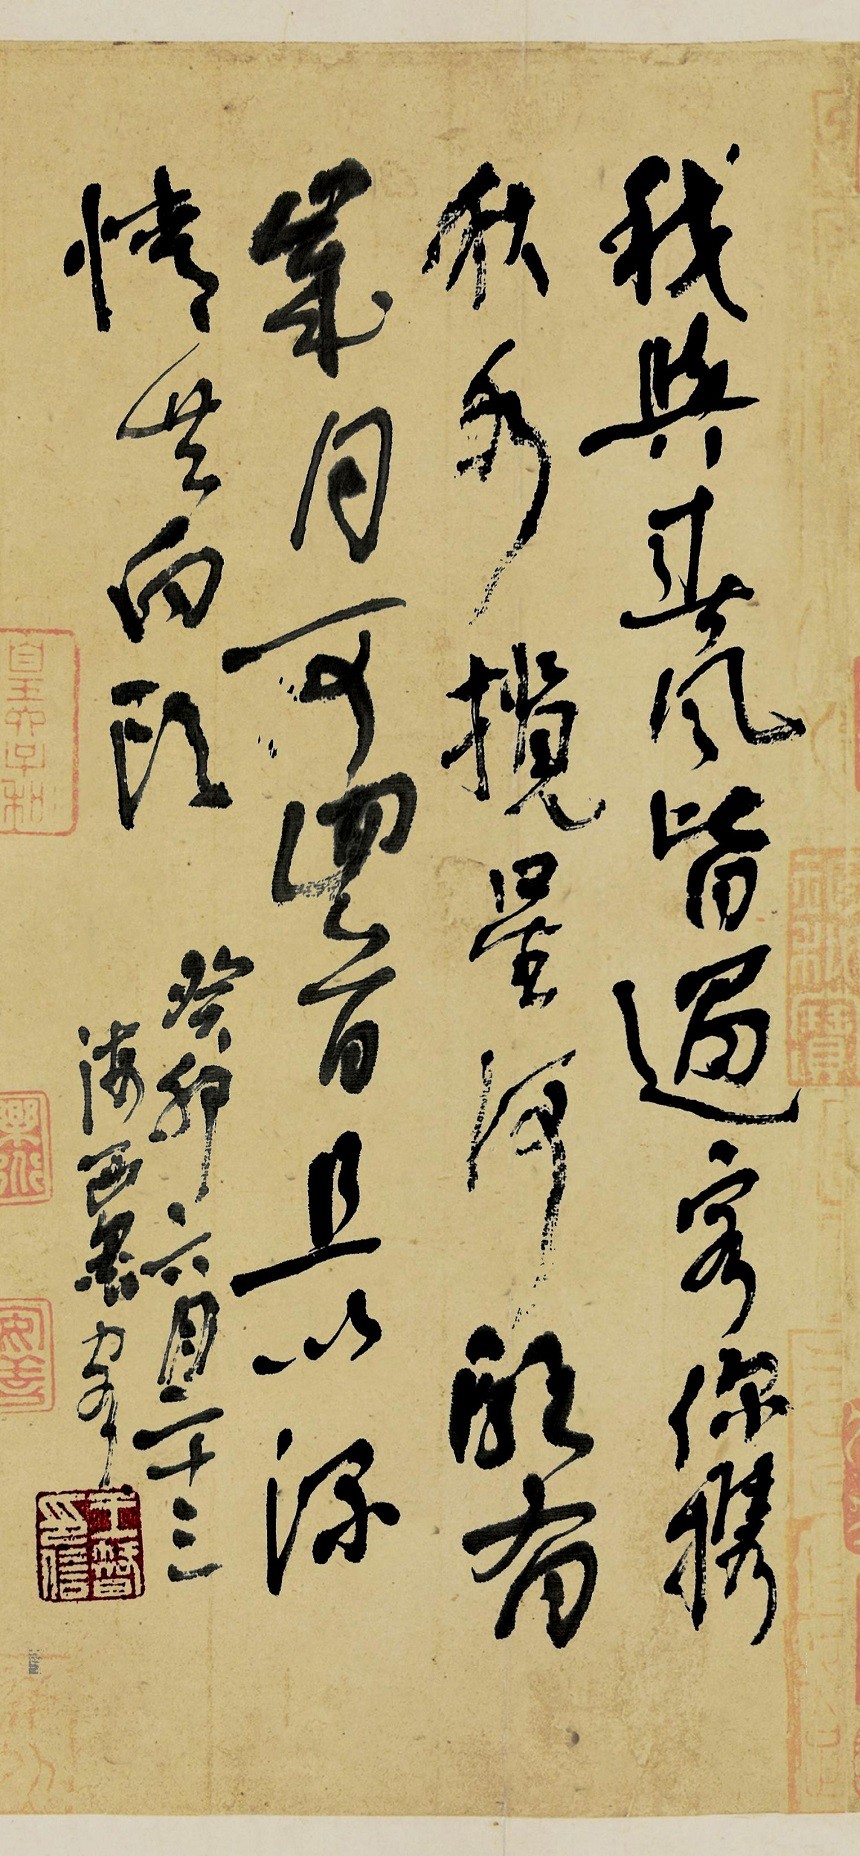 我與春風皆過客你攜
秋水攬星河願有
歲月可回首且以深
情共白頭
癸卯六月二十三
海西